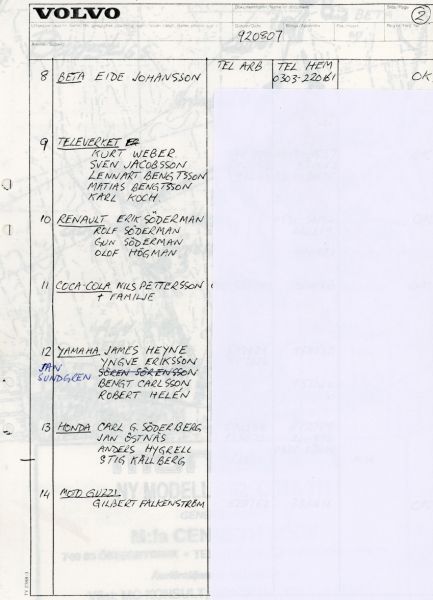 VOLVO
2
920807
TEL ARB TEL HEM
8 BETA EIDE JOHANSSON 0303-22061 OK
9 TELEVERKET
KURT WEBER
SVEN JACOBSSON
LENNART BENGTSSON
MATIAS BENGTSSON
KARL KOCH
10 RENAULT ERIK SÖDERMAN
ROLF SÖDERMAN
GUN SÖDERMAN
OLOF HÖGMAN
11 COCA-COLA NILS PETTERSSON
+ FAMILJE
12 YAMAHA JAMES HEYNE
JAN SUNDGREN
YNGVE ERIKSSON
SÖREN SÖRENSSON
BENGT CARLSSON
ROBERT HELÉN
13 HONDA CARL G. SÖDERBERG
JAN ÖSTNÄS
ANDERS HYGRELL
STIG KÄLLBERG
14 MOTO GUZZI
GILBERT FALKENSTRÖM